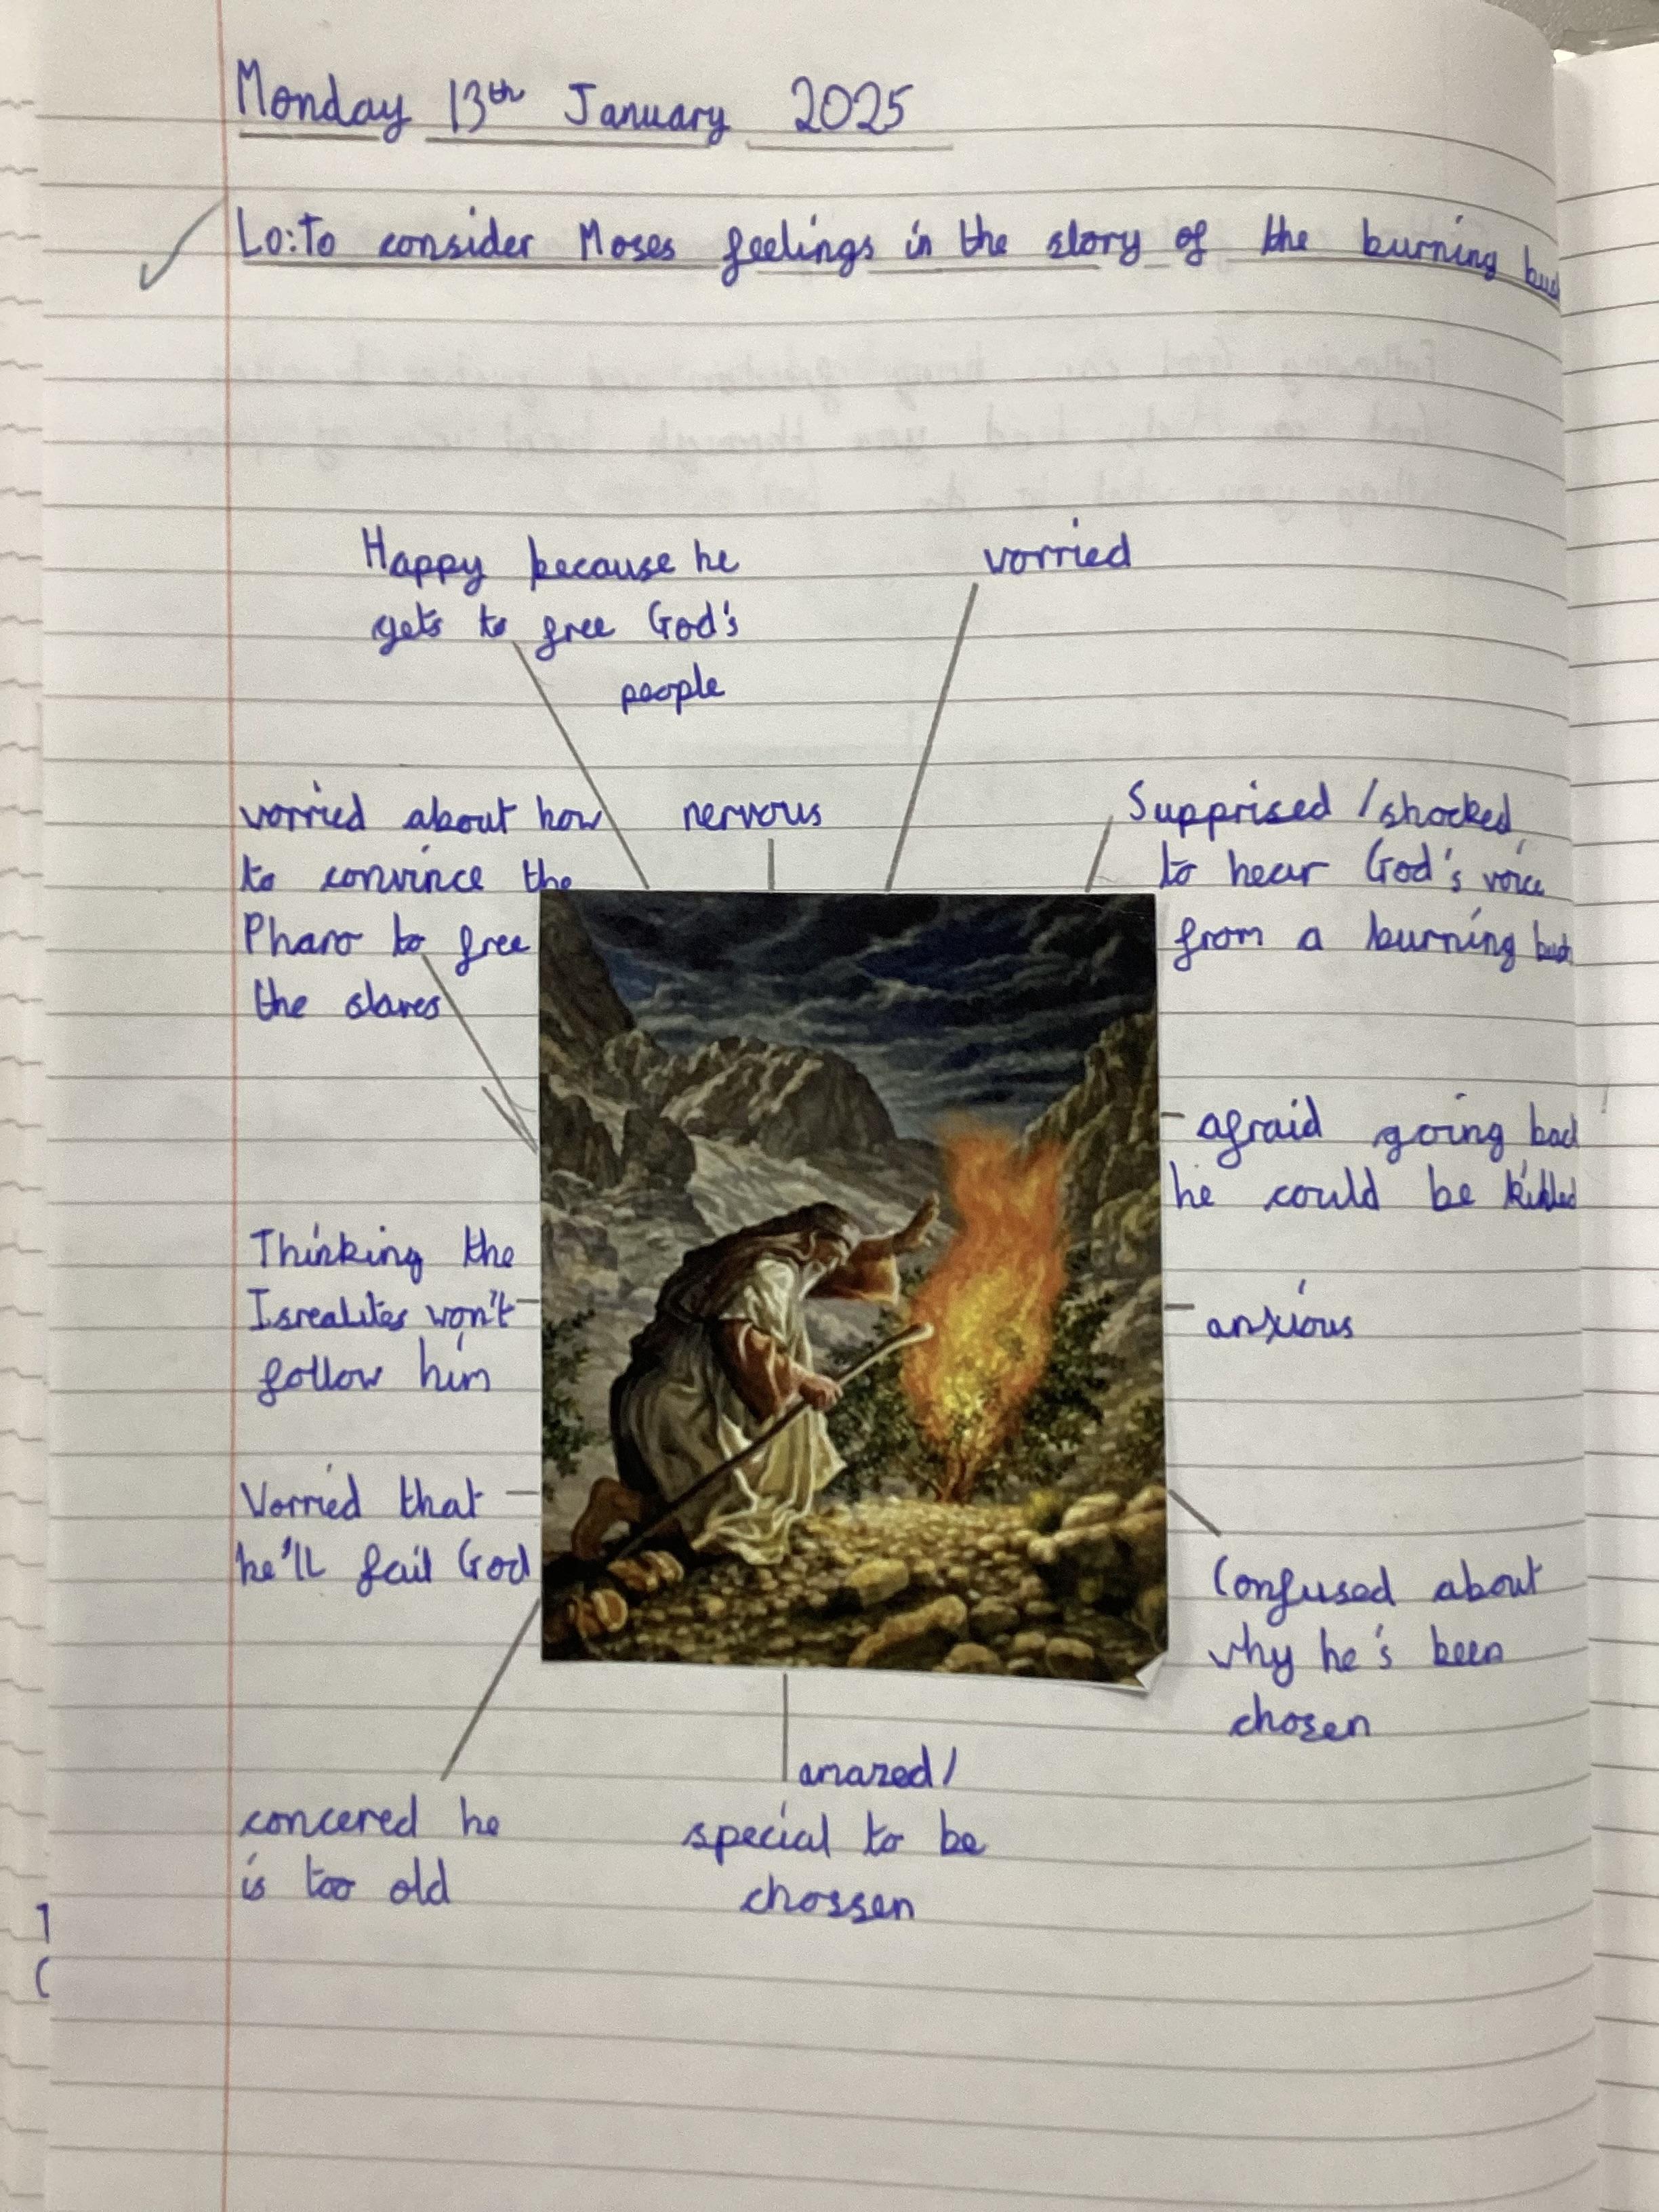 Monday 13th January 2025
Lo: To consider Moses feelings in the story of the burning bush
Happy because he
gets to free God's
people
worried
worried about how
to convince the
Pharo to free
the slaves
nervous
Supprised / shocked
to hear God's voice
from a burning bush
afraid going back
he could be killed
Thinking the
Isrealites won't
follow him
anxious
Worried that
he'll fail God
Confused about
why he's been
chosen
concered he
is too old
amazed /
special to be
chossen